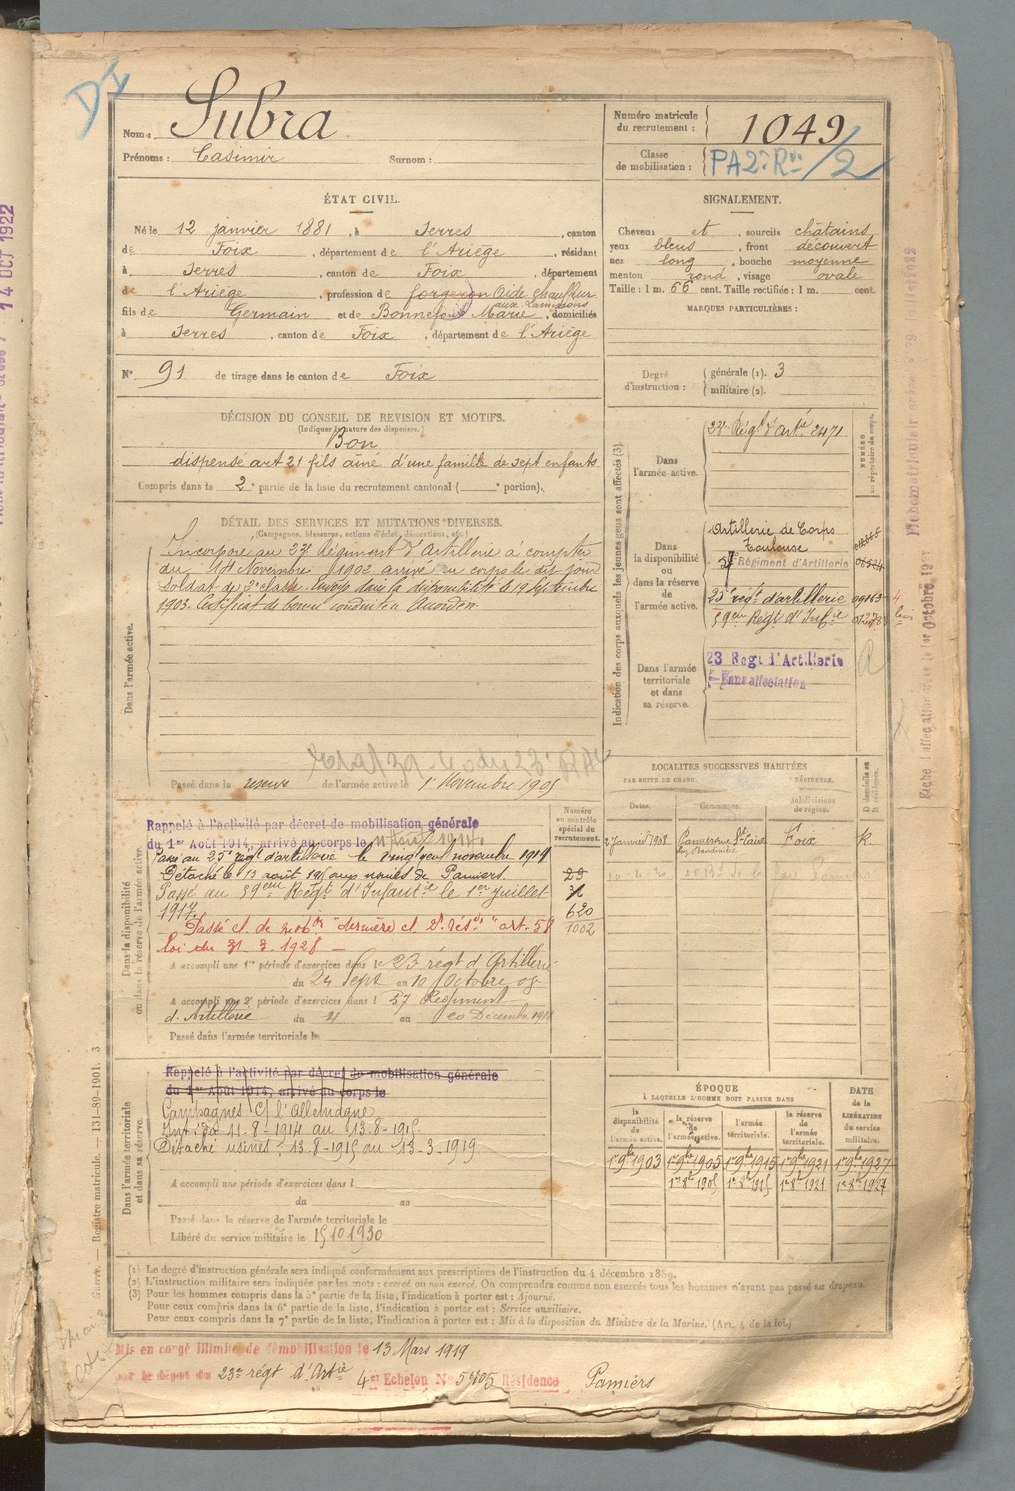 DI
Nom : Subra
Prénoms : Casimir Surnom :
Numéro matricule du recrutement : 1049
Classe de mobilisation : PA 2e Rve /2
ÉTAT CIVIL.
Né le 12 janvier 1881, à Serres, canton
de Foix, département de l'Ariège, résidant
à Serres, canton de Foix, département
de l'Ariège, profession de forgeron Aide chauffeur
aux Laminoirs
fils de Germain et de Bonnefont Marie, domiciliés
à Serres, canton de Foix, département de l'Ariège
N° 91 de tirage dans le canton de Foix
SIGNALEMENT.
Cheveux et, sourcils châtains
yeux bleus, front découvert
nez long, bouche moyenne
menton rond, visage ovale
Taille : 1 m. 66 cent. Taille rectifiée : 1 m. cent.
MARQUES PARTICULIÈRES :
Degré d'instruction : générale (1). 3
militaire (2).
DÉCISION DU CONSEIL DE REVISION ET MOTIFS.
(Indiquer la nature des dispenses.)
Bon
dispensé art 21 fils aîné d'une famille de sept enfants
Compris dans la 2e partie de la liste du recrutement cantonal ( e portion).
DÉTAIL DES SERVICES ET MUTATIONS DIVERSES.
(Campagnes, blessures, actions d'éclat, décorations, etc.)
Dans l'armée active.
Incorporé au 23e Régiment d'Artillerie à compter
du 14 Novembre 1902 arrivé au corps le dit jour
soldat de 2e classe. Envoyé dans la disponibilité le 19 Septembre
1903. Certificat de bonne conduite Accordé.
Passé dans la réserve de l'armée active le 1er Novembre 1905
Indication des corps auxquels les jeunes gens sont affectés (3).
Dans l'armée active.
23e Régt d'Artie 2471
NUMÉRO au répertoire du corps.
Dans la disponibilité ou dans la réserve de l'armée active.
Artillerie de Corps
Toulouse
57e Régiment d'Artillerie
23e régt d'artillerie
59eme Régt d'Infie
Dans l'armée territoriale et dans sa réserve.
23 Regt d'Artillerie
Sans affectation
LOCALITÉS SUCCESSIVES HABITÉES
PAR SUITE DE CHANGt DE RÉSIDENCE.
Dates. Communes. Subdivisions de région. D domicile ou R résidence.
2 Janvier 1908 Foix R.
Dans la disponibilité ou dans la réserve de l'armée active.
Numéro au contrôle spécial du recrutement.
Rappelé à l'activité par décret de mobilisation générale
du 1er Août 1914, arrivé au corps le 11 Août 1914.
Passé au 23e régt d'artillerie le vingt neuf novembre 1914
Détaché le 13 août 1915 aux usines de Pamiers.
Passé au 59eme Régt d'Infantie le 1er juillet
1917.
620
1002
Passé cl. de mobon "dernière cl. 2e résve" art. 58
loi du 31. 3. 1928 —
A accompli une 1re période d'exercices dans le 23 régt d'Artillerie
du 24 Sept au 10 Octobre 08
A accompli une 2e période d'exercices dans l 57 Régiment
d'Artillerie du 21 au 20 Décembre 1911
Passé dans l'armée territoriale le
Dans l'armée territoriale et dans sa réserve.
Rappelé à l'activité par décret de mobilisation générale
du 1er Août 1914, arrivé au corps le
Campagnes C/ l'Allemagne
Intérieur 11-8-1914 au 13-8-1915
Détaché usines : 13-8-1915 au 13-3-1919.
A accompli une période d'exercices dans l
du au
Passé dans la réserve de l'armée territoriale le
Libéré du service militaire le 15 10 1930
ÉPOQUE
À LAQUELLE L'HOMME DOIT PASSER DANS
la disponibilité de l'armée active. la réserve de l'armée active. l'armée territoriale. la réserve de l'armée territoriale.
DATE de la LIBÉRATION du service militaire.
1er 9bre 1903 1er 9bre 1905 1er 9bre 1915 1er 9bre 1921 1er 9bre 1927
1er 8bre 1905 1er 8bre 1915 1er 8bre 1921 1er 8bre 1927
(1) Le degré d'instruction générale sera indiqué conformément aux prescriptions de l'instruction du 4 décembre 1889.
(2) L'instruction militaire sera indiquée par les mots : exercé ou non exercé. On comprendra comme non exercés tous les hommes n'ayant pas passé au drapeau.
(3) Pour les hommes compris dans la 5e partie de la liste, l'indication à porter est : Ajourné.
Pour ceux compris dans la 6e partie de la liste, l'indication à porter est : Service auxiliaire.
Pour ceux compris dans la 7e partie de la liste, l'indication à porter est : Mis à la disposition du Ministre de la Marine. (Art. 4 de la loi.)
Mis en congé illimité de démobilisation le 13 Mars 1919
par le dépôt du 23e régt d'Artie 4e Echelon N° 5705 Résidence Pamiers
Registre matricule. — 131-89-1901. 3
14 OCT 1922